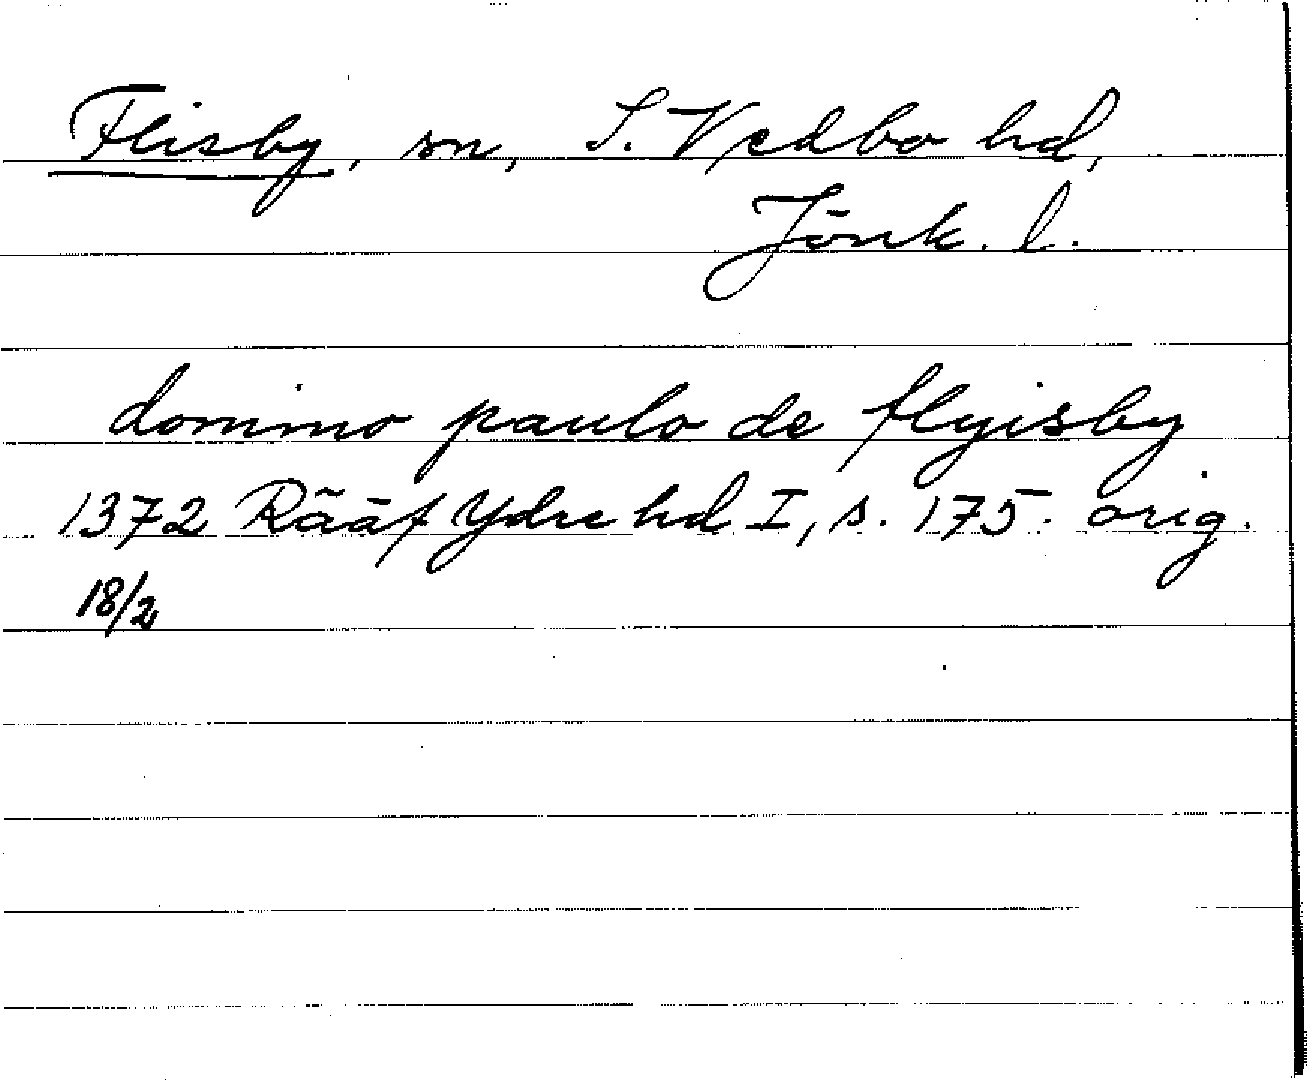 Flisby, sn, S. Vedbo hd,
Jönk. l.
domino paulo de flyisby
1372 Rääf Ydre hd I, s. 175. orig.
18/2